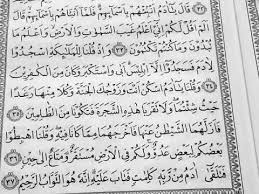 قَالَ يَٰٓـَٔادَمُ أَنۢبِئْهُم بِأَسْمَآئِهِمْ فَلَمَّآ أَنۢبَأَهُم بِأَسْمَآئِهِمْ
قَالَ أَلَمْ أَقُل لَّكُمْ إِنِّىٓ أَعْلَمُ غَيْبَ ٱلسَّمَٰوَٰتِ وَٱلْأَرْضِ وَأَعْلَمُ مَا
تُبْدُونَ وَمَا كُنتُمْ تَكْتُمُونَ ٣٣ وَإِذْ قُلْنَا لِلْمَلَٰٓئِكَةِ ٱسْجُدُوا۟
لِـَٔادَمَ فَسَجَدُوٓا۟ إِلَّآ إِبْلِيسَ أَبَىٰ وَٱسْتَكْبَرَ وَكَانَ مِنَ ٱلْكَٰفِرِينَ
٣٤ وَقُلْنَا يَٰٓـَٔادَمُ ٱسْكُنْ أَنتَ وَزَوْجُكَ ٱلْجَنَّةَ وَكُلَا مِنْهَا رَغَدًا
حَيْثُ شِئْتُمَا وَلَا تَقْرَبَا هَٰذِهِ ٱلشَّجَرَةَ فَتَكُونَا مِنَ ٱلظَّٰلِمِينَ ٣٥
فَأَزَلَّهُمَا ٱلشَّيْطَٰنُ عَنْهَا فَأَخْرَجَهُمَا مِمَّا كَانَا فِيهِ وَقُلْنَا ٱهْبِطُوا۟
بَعْضُكُمْ لِبَعْضٍ عَدُوٌّ وَلَكُمْ فِى ٱلْأَرْضِ مُسْتَقَرٌّ وَمَتَٰعٌ إِلَىٰ حِينٍ ٣٦
فَتَلَقَّىٰٓ ءَادَمُ مِن رَّبِّهِۦ كَلِمَٰتٍ فَتَابَ عَلَيْهِ إِنَّهُۥ هُوَ ٱلتَّوَّابُ ٱلرَّحِيمُ ٣٧